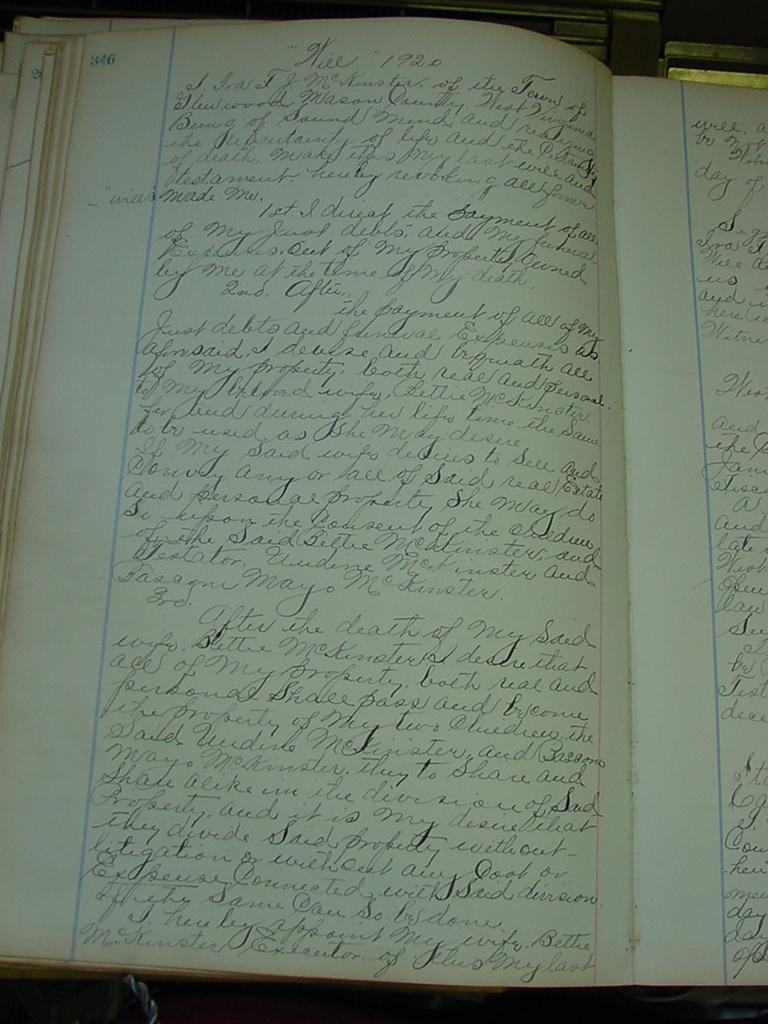 346
"Will" 1920
I, Ira T J McKinster, of the Town of
Glenwood Mason County West Virginia
Being of Sound Mind and realizing
the uncertainty of life and the Certainty
of death, make this my last will and
testament, hereby revoking all former
"wills" made Me.
1st I direct the payment of all
of My Just debts and My funeral
Expenses, Out of My property owned
by Me at the time of My death.
2nd. After,
the payment of all of My
Just debts and funeral Expenses as
aforesaid, I devise and bequeath all
of My property, both real and personal
to My beloved wife, Bettie McKinster
for and during her life time the Same
to be used as She May desire
If My Said wife desires to Sell and
Convey any or all of Said real Estate
and personal property She May do
So upon the Consent of the Children
of the Said Bettie McKinster, and
testator, Undine McKinster and
Mayo McKinster.
3rd.
After the death of My Said
wife, Bettie McKinster I desire that
all of My property, both real and
personal Shall pass and become
the property of My two Children, the
Said Undine McKinster, and
Mayo McKinster, they to Share and
Share alike in the division of Said
Property, and it is My desire that
they divide Said property without
litigation or without any Cost or
Expense Connected with Said division
If the Same Can So be done
I hereby appoint My wife, Bettie
McKinster Executor of this My last
will, a
day of
Ira T
Will
us
and
here
Witne
West
and
the
A
and
late
West
Law
be
Test
dece
I
Cou
day
day